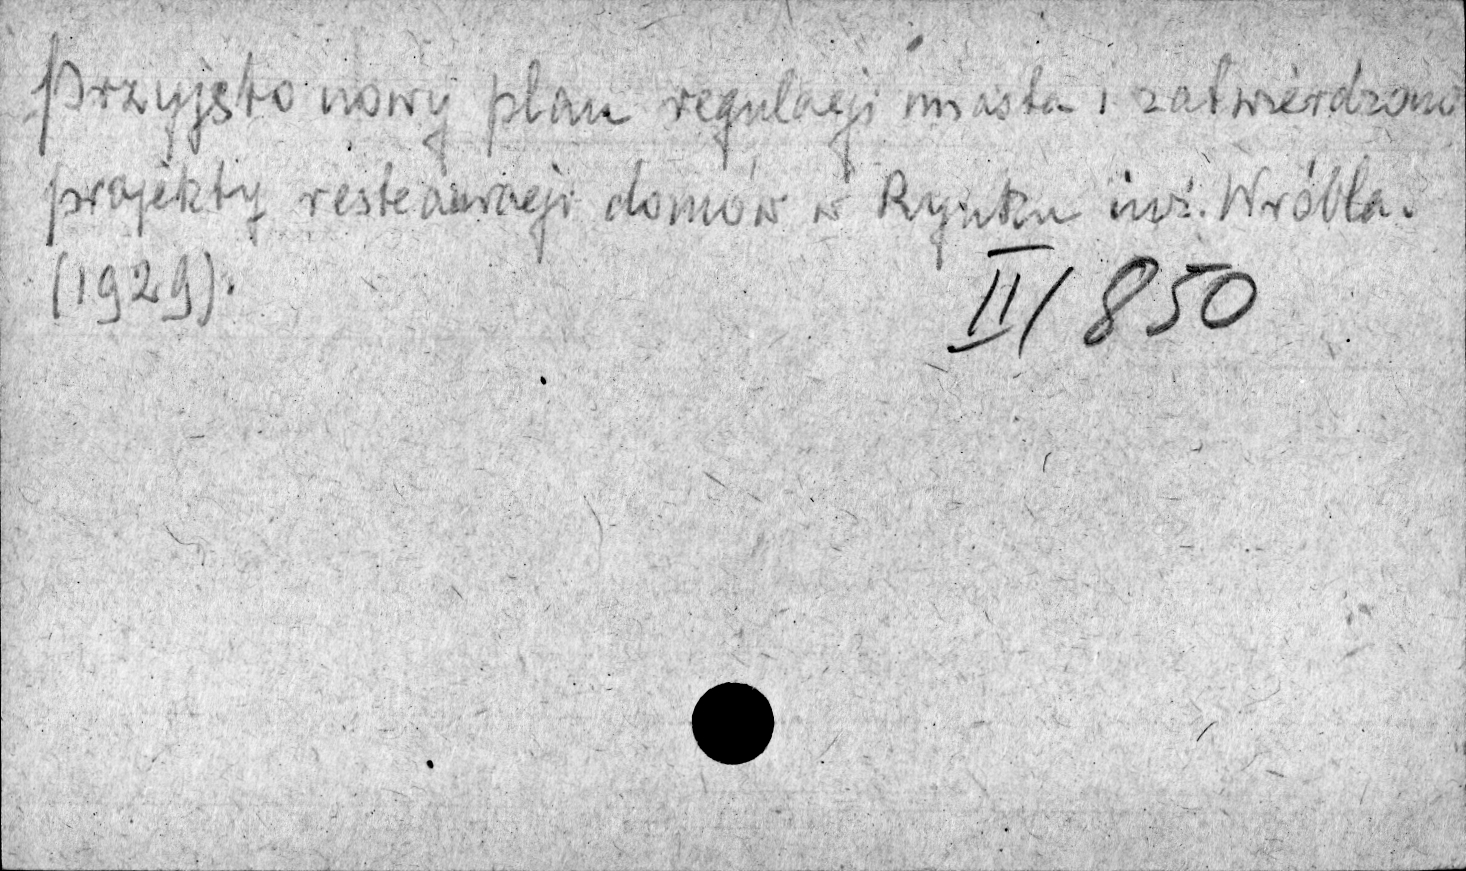 Przyjęto nowy plan regulacji miasta i zatwierdzono
projekty restauracji domów w Rynku inż. Wróbla.
(1929).
II/850